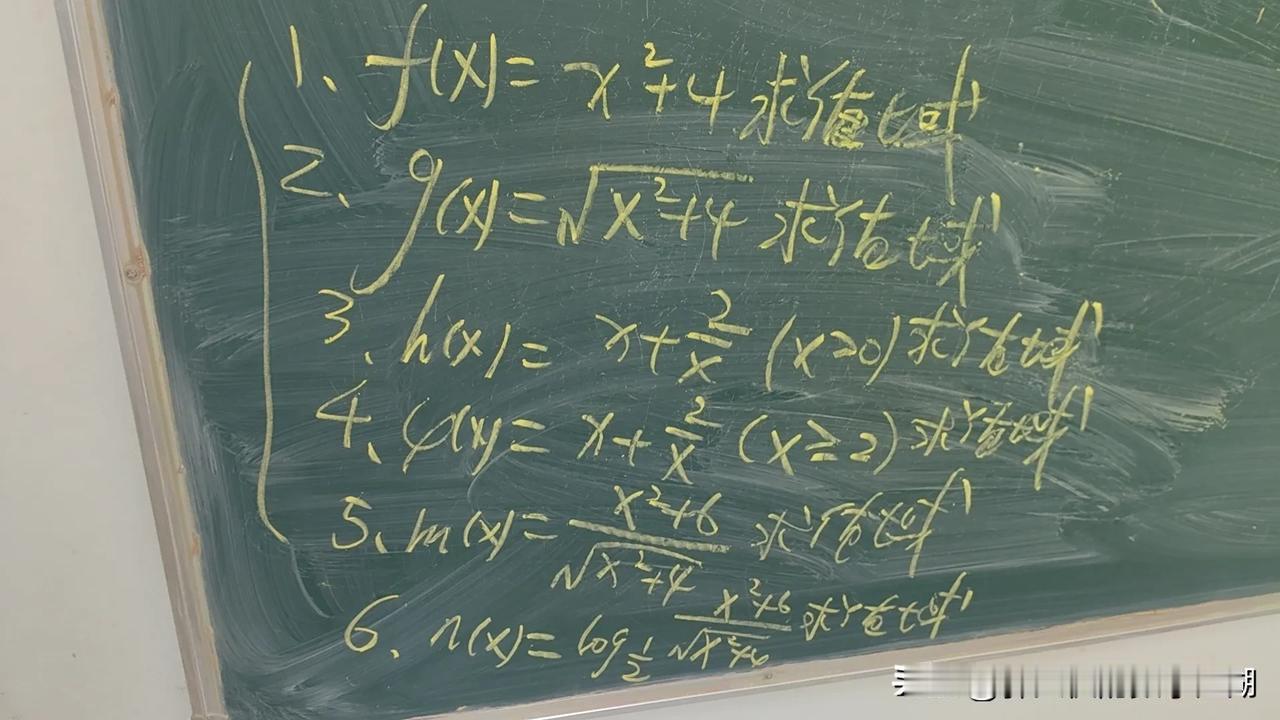 1、f(x)=x²+4 求值域
2、g(x)=√(x²+4) 求值域
3、h(x)=x+2/x (x>0) 求值域
4、φ(x)=x+2/x (x≥2) 求值域
5、m(x)=(x²+6)/√(x²+4) 求值域
6、n(x)=log_{1/2} (x²+6)/√(x²+4) 求值域